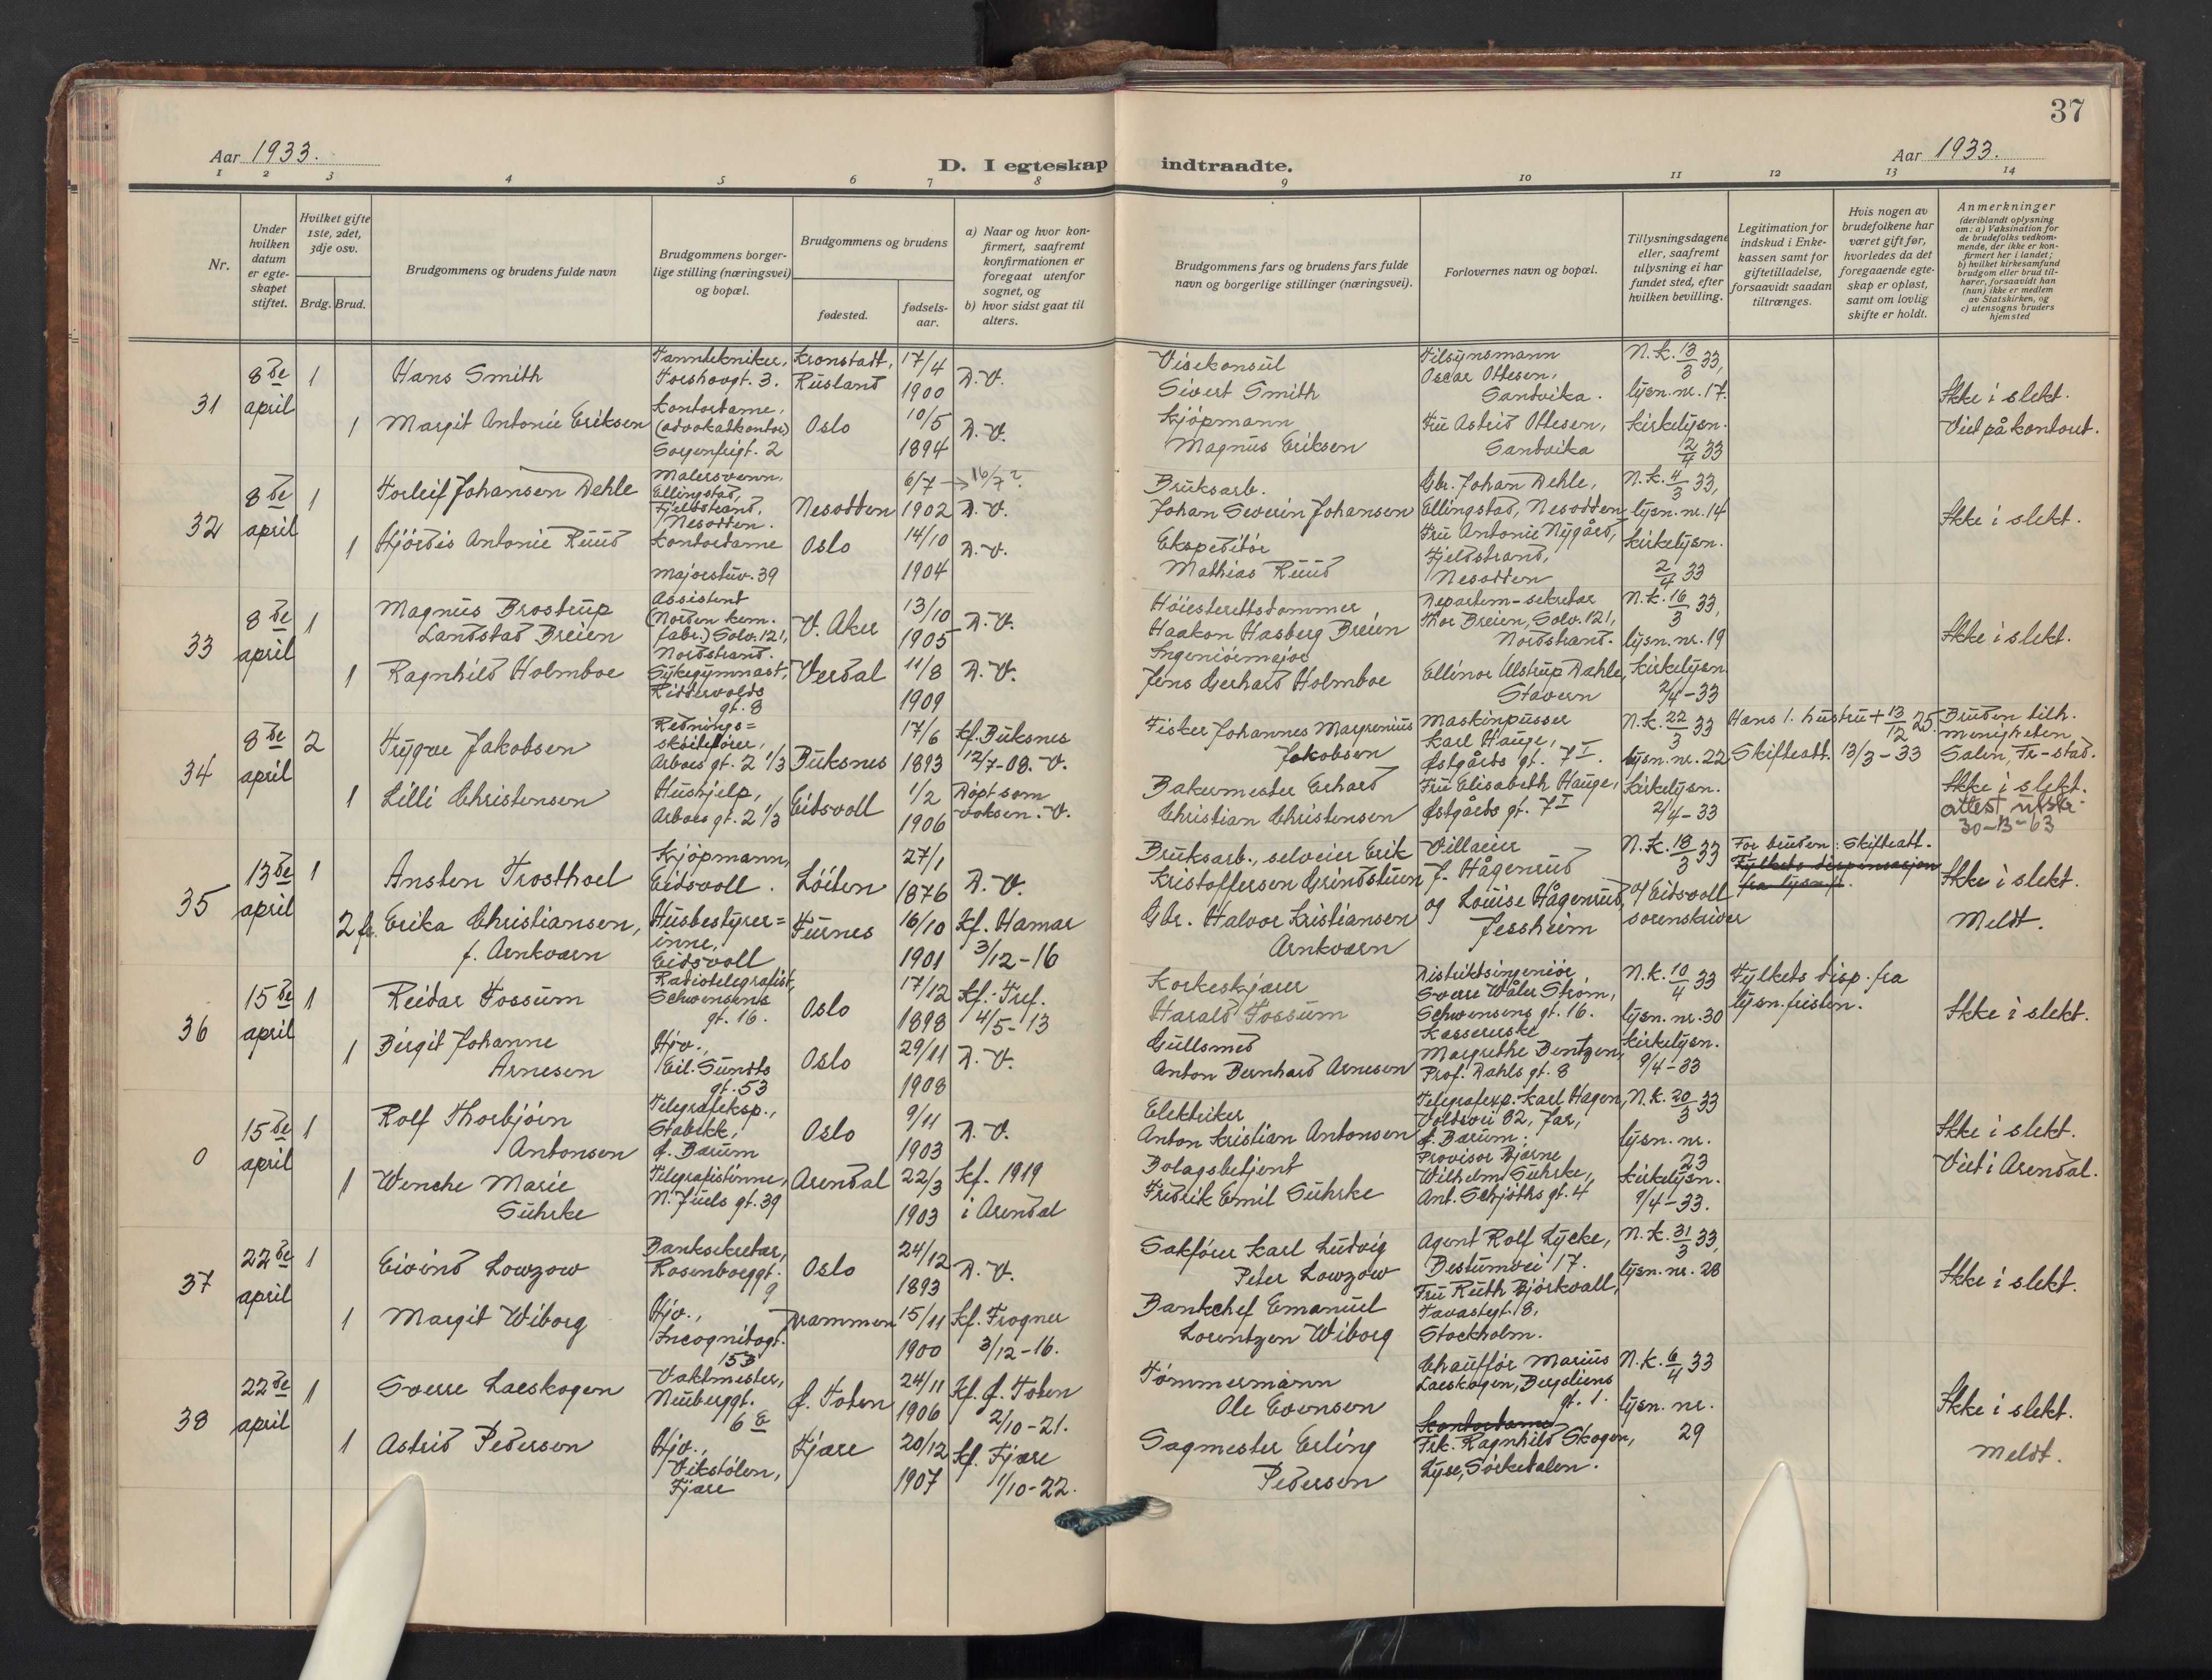 37
Aar 1933.
D. I egteskap indtraadte.
Aar 1933.
1 2 3 4 5 6 7 8 9 10 11 12 13 14
Nr.
Under hvilken datum er egteskapet stiftet.
Hvilket gifte 1ste, 2det, 3dje osv.
Brdg. Brud.
Brudgommens og brudens fulde navn
Brudgommens borgerlige stilling (næringsvei) og bopæl.
Brudgommens og brudens
fødested.
fødselsaar.
a) Naar og hvor konfirmert, saafremt konfirmationen er foregaat utenfor sognet, og
b) hvor sidst gaat til alters.
Brudgommens fars og brudens fars fulde navn og borgerlige stillinger (næringsvei).
Forlovernes navn og bopæl.
Tillysningsdagene eller, saafremt tillysning ei har fundet sted, efter hvilken bevilling.
Legitimation for indskud i Enkekassen samt for giftetilladelse, forsaavidt saadan tiltrænges.
Hvis nogen av brudefolkene har været gift før, hvorledes da det foregaaende egteskap er opløst, samt om lovlig skifte er holdt.
Anmerkninger
(deriblandt oplysning om: a) Vaksination for de brudefolks vedkommende, der ikke er konfirmert her i landet; b) hvilket kirkesamfund brudgom eller brud tilhører, forsaavidt han (hun) ikke er medlem av Statskirken, og c) utensogns bruders hjemsted
31
8de april
1
Hans Smith
Tanntekniker, Toeshovgt. 3.
Kronstadt, Rusland
17/4 1900
D. V.
Visekonsul Sivert Smith
Tilsynsmann Oscar Ottesen, Sandvika.
N.k. 13/3 33, lysn. nr. 17.
Ikke i slekt.
1
Margit Antonie Eriksen
Kontordame, (advokatkontor) Sorgenfrigt. 2
Oslo
10/5 1894
D. V.
Kjøpmann Magnus Eriksen
Fru Astrid Ottesen, Sandvika
Kirkelysn. 2/4 33
Viet på kontoret.
32
8de april
1
Torleif Johansen Dehle
Malersvenn, Ellingstad, Fjellstrand, Nesodden.
Nesodden
6/7 → 16/7? 1902
D. V.
Bruksarb. Johan Severin Johansen
Gbr. Johan Dehle, Ellingstad, Nesodden
N.k. 4/3 33, lysn. nr. 14
Ikke i slekt.
1
Hjørdis Antonie Ruud
Kontordame Majorstuv. 39
Oslo
14/10 1904
D. V.
Ekspeditør Mathias Ruud
Fru Antonie Nygård, Fjeldstrand, Nesodden
Kirkelysn. 2/4 33
33
8de april
1
Magnus Brostrup Landstad Breien
Assistent (Norden kem. fabr.) Solv. 121, Nordstrand.
V. Aker
13/10 1905
D. V.
Høiesterettsdommer Haakon Hasberg Breien
Departem-sekretær Thor Breien, Solv. 121, Nordstrand.
N.k. 16/3 33, lysn. nr. 19
Ikke i slekt.
1
Ragnhild Holmboe
Sykegymnast, Riddervolds gt. 8
Verdal
11/8 1909
D. V.
Ingeniørmajor Jens Gerhard Holmboe
Ellinor Ulstrup Dahle, Stavern
Kirkelysn. 2/4-33
34
8de april
2
Trygve Jakobsen
Rednings=skøitefører, Arboes gt. 2 1/3
Buksnes
17/6 1893
Kf. Buksnes 12/7-08. V.
Fisker Johannes Margrenius Jakobsen
Maskinpusser Karl Hauge, Østgårds gt. 7 I.
N.k. 22/3 33 lysn. nr. 22
Hans 1. hustru + 13/12 25. Skifteatt. 13/3-33
Bruden tilh. menigheten Salen, Fr-stad. Ikke i slekt.
1
Lilli Christensen
Hushjelp, Arboes gt. 2 1/3
Eidsvoll
1/2 1906
Døpt som voksen. V.
Bakermester Erhard Christian Christensen
Fru Elisabeth Hauge, Østgårds gt. 7 I
Kirkelysn. 2/4-33
attest utste.
35
13de april
1
Ansten Trosthoel
Kjøpmann, Eidsvoll.
Løiten
27/1 1876
D. V.
Bruksarb., selveier Erik Kristoffersen Grindstuen
Villaeier J. Hågenrud
N.k. 18/3 33
For bruden: Skifteatt.
Fylkets dispensasjon fra lysn.f.
Ikke i slekt.
2 fr.
Erika Christiansen, f. Arnkværn
Husbestyrer=inne, Eidsvoll
Furnes
16/10 1901
Kf. Hamar 3/12-16
Gbr. Halvor Kristiansen Arnkværn
og Louise Hågenrud, Jessheim
v/ Eidsvoll sorenskriver
Meldt.
36
15de april
1
Reidar Fossum
Radiotelegrafist, Schwensens gt. 16.
Oslo
17/12 1898
Kf. Tref. 4/5-13
Korkeskjærer Harald Fossum
Distriktsingeniør, Sverre Wåler Strøm, Schwensens gt. 16.
N.k. 10/4 33 lysn. nr. 30
Fylkets disp. fra lysn. fristen.
Ikke i slekt.
1
Birgit Johanne Arnesen
Hjv., Eil. Sundts gt. 53
Oslo
29/11 1908
D. V.
Gullsmed Anton Bernhard Arnesen
Kassererske Margrethe Bentzen, Prof. Dahls gt. 8
Kirkelysn. 9/4-33
0
15de april
1
Rolf Thorbjørn Antonsen
Telegrafeksp., Stabekk, Ø. Bærum
Oslo
9/11 1903
D. V.
Elektriker Anton Kristian Antonsen
Telegrafexp. Karl Hagen, Voldsvei 82, Jar, Ø. Bærum.
N.k. 20/3 33 lysn. nr. 23
Ikke i slekt.
1
Wenche Marie Suhrke
Telegrafistinne, N. Juels gt. 39
Arendal
22/3 1903
Kf. 1919 i Arendal
Bolagsbetjent Fridrik Emil Suhrke
Provisor Bjarne Wilhelm Suhrke, Ant. Schjøths gt. 4
Kirkelysn. 9/4-33.
Viet i Arendal.
37
22de april
1
Eivind Lowzow
Banksekretær, Rosenborggt. 9
Oslo
24/12 1893
D. V.
Sakfører Karl Ludvig Peter Lowzow
Agent Rolf Lycke, Bestumvei 17.
N.k. 31/3 33, lysn. nr. 28
Ikke i slekt.
1
Margit Wiborg
Hjv., Incognitogt. 15 B
Drammen
15/11 1900
Kf. Frogner 3/12-16.
Bankchef Emanuel Lorentzen Wiborg
Fru Ruth Bjørkvall, Tavastgt. 8, Stockholm.
38
22de april
1
Sverre Laeskogen
Vaktmester, Neuberggt. 6 E
Ø. Toten
24/11 1906
Kf. Ø. Toten 2/10-21.
Tømmermann Ole Evensen
Chauffør Marius Laeskogen, Bergsliens gt. 1.
N.k. 6/4 33 lysn. nr. 29
Ikke i slekt.
1
Astrid Pedersen
Hjv., Vikstølen, Fjære
Fjære
20/12 1907
Kf. Fjære 11/10-22.
Sagmester Erling Pedersen
Kontordame
Frk. Ragnhild Skogen, Lyse, Sørkedalen.
Meldt.